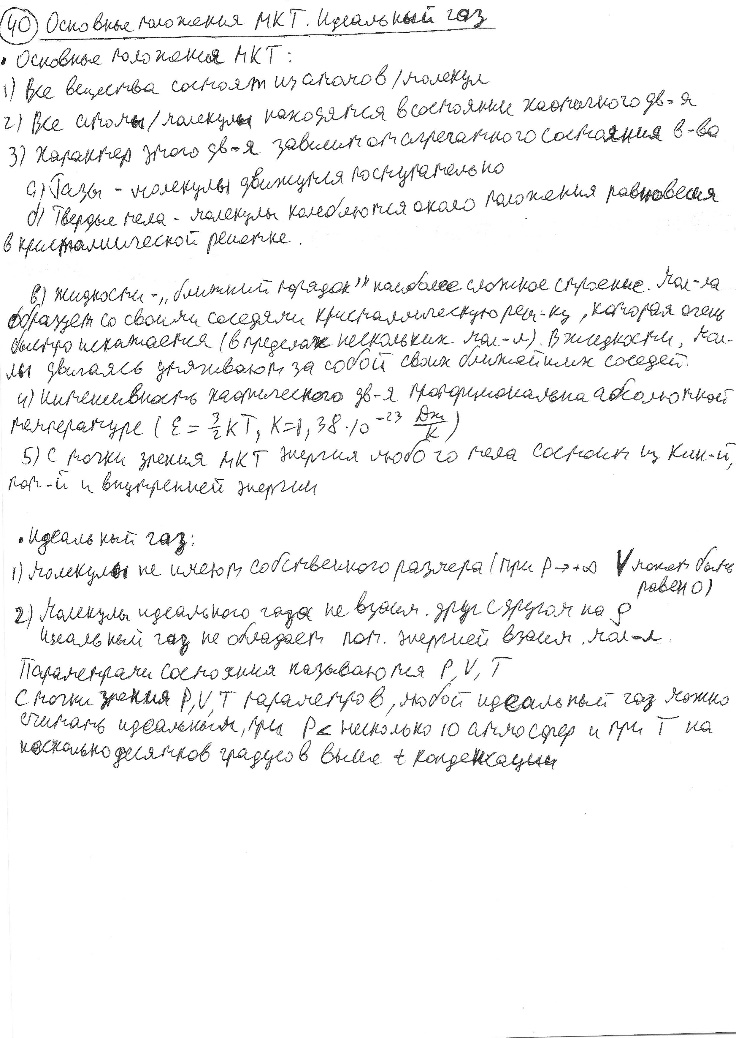 40) Основные положения МКТ. Идеальный газ
• Основные положения МКТ:
1) Все вещества состоят из атомов/молекул
2) Все атомы/молекулы находятся в состоянии хаотичного дв-я
3) Характер этого дв-я зависит от агрегатного состояния в-ва
а) Газы - молекулы движутся поступательно
б) Твердые тела - молекулы колеблются около положения равновесия
в кристаллической решетке.
в) Жидкости - „ближний порядок" наиболее сложное строение. Мол-ла
образует со своими соседями кристаллическую реш-ку, которая очень
быстро искажается (в пределах нескольких мол-л). В жидкости, мол-
лы двигаясь утягивают за собой своих ближайших соседей.
4) Интенсивность хаотического дв-я пропорциональна абсолютной
температуре (Ɛ = 3/2 kT, K=1,38·10⁻²³ Дж/К)
5) С точки зрения МКТ энергия любого тела состоит из кин-й,
пот-й и внутренней энергии
• Идеальный газ:
1) Молекулы не имеют собственного размера (при P→+∞ V может быть
равен 0)
2) Молекулы идеального газа не взаим. друг с другом на ρ
Идеальный газ не обладает пот. энергией взаим. мол-л.
Параметрами состояния называются P, V, T
С точки зрения P, V, T параметров, любой идеальный газ можно
считать идеальным, при P< несколько 10 атмосфер и при T на
несколько десятков градусов выше t конденсации